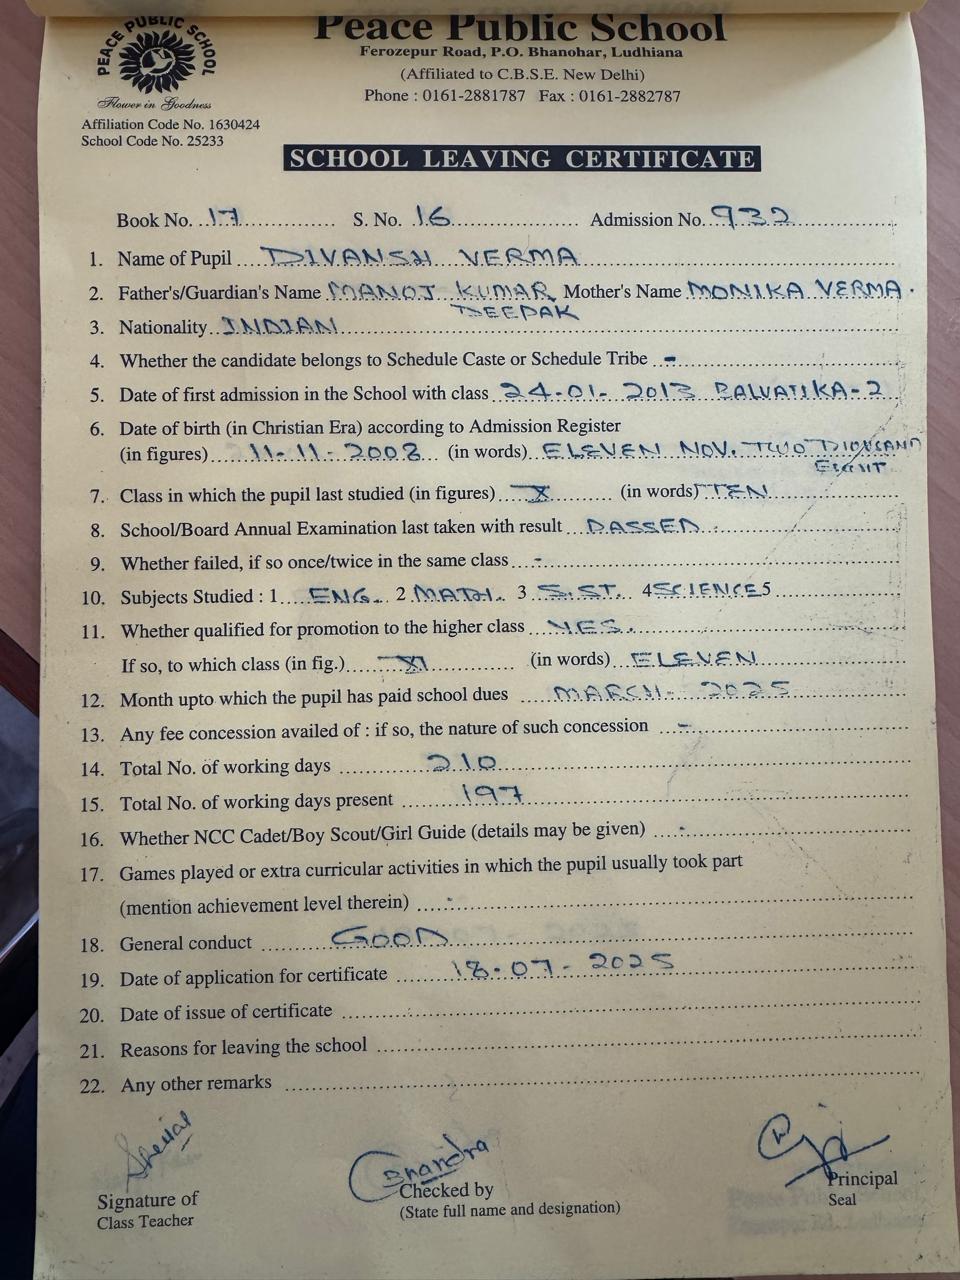 PEACE PUBLIC SCHOOL
Flower in Goodness
Peace Public School
Ferozepur Road, P.O. Bhanohar, Ludhiana
(Affiliated to C.B.S.E. New Delhi)
Phone : 0161-2881787 Fax : 0161-2882787
Affiliation Code No. 1630424
School Code No. 25233
SCHOOL LEAVING CERTIFICATE
Book No. 17 S. No. 16 Admission No. 932
1. Name of Pupil DIVANSH VERMA
2. Father's/Guardian's Name MANOJ KUMAR DEEPAK Mother's Name MONIKA VERMA
3. Nationality INDIAN
4. Whether the candidate belongs to Schedule Caste or Schedule Tribe -
5. Date of first admission in the School with class 24-01-2013 BALVATIKA-2
6. Date of birth (in Christian Era) according to Admission Register
(in figures) 11-11-2008 (in words) ELEVEN NOV. TWO THOUSAND EIGHT
7. Class in which the pupil last studied (in figures) X (in words) TEN
8. School/Board Annual Examination last taken with result PASSED
9. Whether failed, if so once/twice in the same class -
10. Subjects Studied : 1 ENG. 2 MATH. 3 S.ST. 4 SCIENCE 5
11. Whether qualified for promotion to the higher class YES.
If so, to which class (in fig.) XI (in words) ELEVEN
12. Month upto which the pupil has paid school dues MARCH- 2025
13. Any fee concession availed of : if so, the nature of such concession -
14. Total No. of working days 210
15. Total No. of working days present 197
16. Whether NCC Cadet/Boy Scout/Girl Guide (details may be given) -
17. Games played or extra curricular activities in which the pupil usually took part
(mention achievement level therein) -
18. General conduct GOOD
19. Date of application for certificate 18-07-2025
20. Date of issue of certificate
21. Reasons for leaving the school
22. Any other remarks
Chandra
Signature of
Class Teacher
Checked by
(State full name and designation)
Principal
Seal